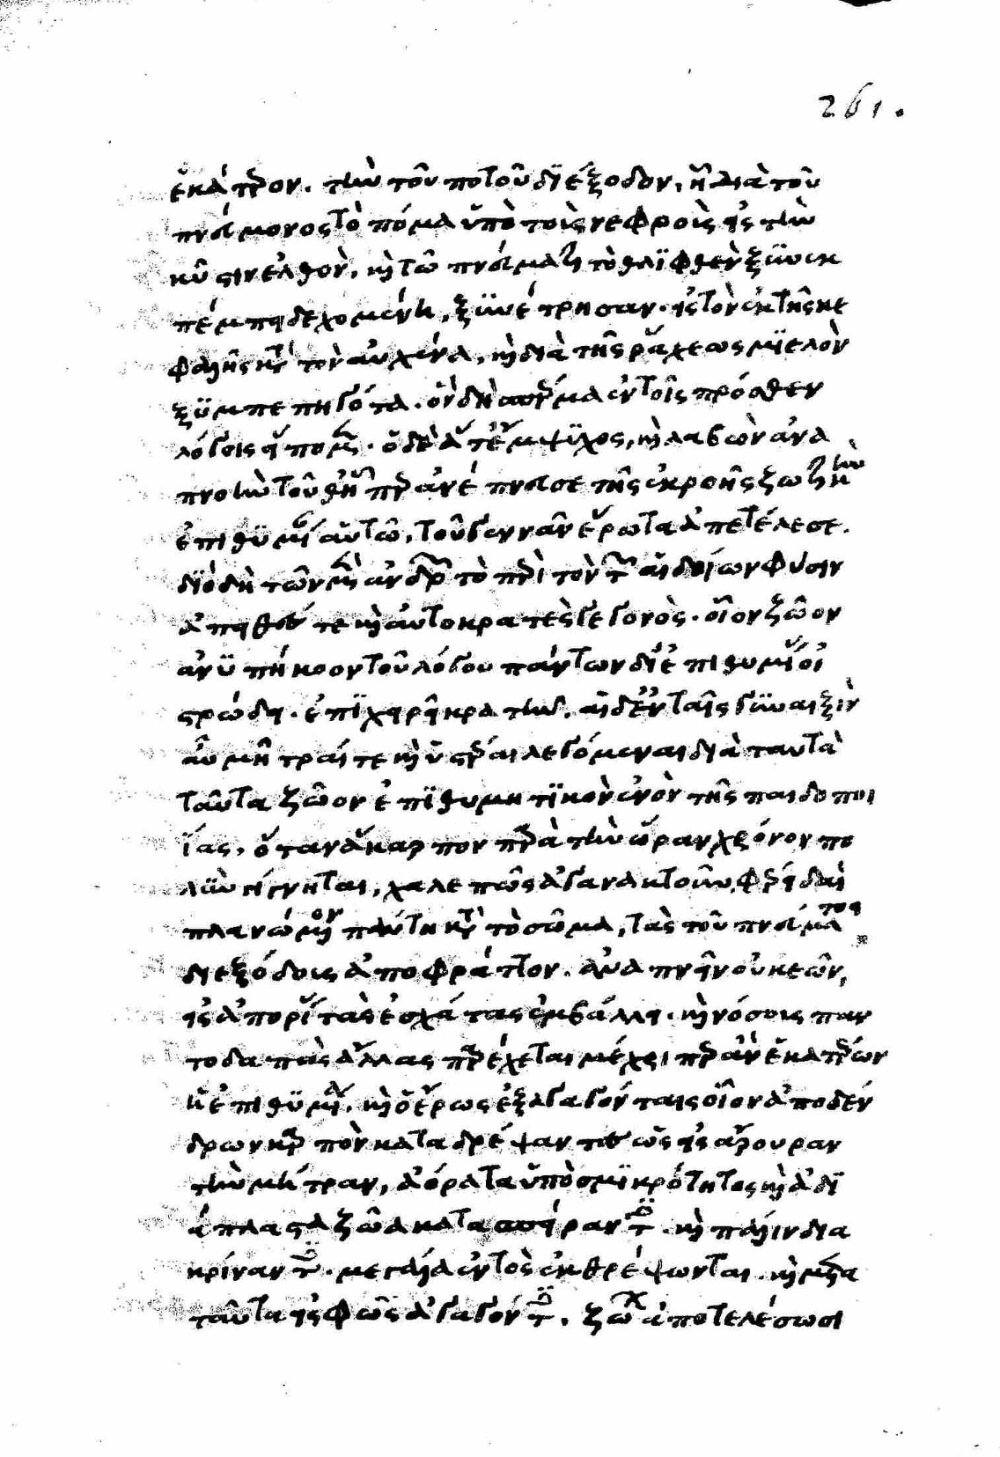 261.
ἑκάτερον. τὴν τοῦ ποτοῦ διέξοδον, ᾗ διὰ τοῦ
πνεύμονος τὸ πόμα ὑπὸ τοὺς νεφροὺς εἰς τὴν
κύστιν ἐλθὸν, καὶ τῷ πνεύματι τὸ θλιφθὲν ξυνεκ
πέμπει δεχομένη, ξυνέτρησαν. εἰς τὸν ἐκ τῆς κε
φαλῆς κατὰ τὸν αὐχένα, καὶ διὰ τῆς ῥάχεως μυελὸν
ξυμπεπηγότα. ὃν δὴ σπέρμα ἐν τοῖς πρόσθεν
λόγοις εἴπομεν. ὁ δὲ ἅτ' ἔμψυχος, καὶ λαβὼν ἀνα
πνοὴν τοῦθ' ᾗπερ ἀνέπνευσε τῆς ἐκροῆς ζωτικὴν
ἐπιθυμίαν αὐτῷ, τοῦ γεννᾶν ἔρωτα ἀπετέλεσε.
διὸ δὴ τῶν μὲν ἀνδρῶν τὸ περὶ τὸν τῶν αἰδοίων φύσιν
ἀπειθές τε καὶ αὐτοκρατὲς γεγονὸς. οἷον ζῶον
ἀνυπήκοον τοῦ λόγου πάντων δι' ἐπιθυμίας οἰ
στρώδεις. ἐπιχειρεῖ κρατεῖν. αἱ δ' ἐν ταῖς γυναιξὶν
αὖ μῆτραί τε καὶ ὑστέραι λεγόμεναι διὰ ταυτὰ
ταῦτα ζῶον ἐπιθυμητικὸν ἐνὸν τῆς παιδοποι
ΐας, ὅταν ἄκαρπον παρὰ τὴν ὥραν χρόνον πο
λὺν γίγνηται, χαλεπῶς ἀγανακτοῦν φέρει, καὶ
πλανώμενον πάντη κατὰ τὸ σῶμα, τὰς τοῦ πνεύματος
διεξόδους ἀποφράττον. ἀναπνεῖν οὐκ ἐῶν,
εἰς ἀπορίας τὰς ἐσχάτας ἐμβάλλει. καὶ νόσους παν
τοδαπὰς ἄλλας παρέχεται μέχρι περ ἂν ἑκατέρων
ἡ ἐπιθυμία. καὶ ὁ ἔρως ἐξαγαγόν ταις οἷον ἀπὸ δέν
δρων καρπὸν καταδρέψαντες ὡς εἰς ἄρουραν
τὴν μήτραν, ἀόρατα ὑπὸ σμικρότητος καὶ ἀδι
άπλαστα ζῶα κατασπείραντες. καὶ πάλιν δια
κρίναντες. μεγάλα ἐντὸς ἐκθρέψωνται. καὶ μετὰ
ταῦτα εἰς φῶς ἀγαγόντες. ζώων ἀποτελέσωσι